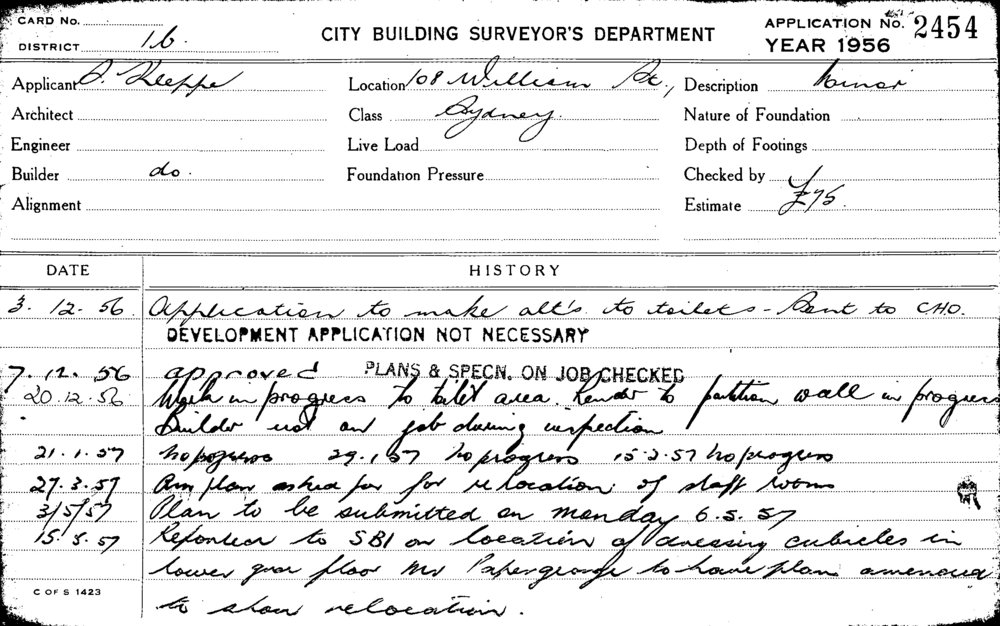 CARD No.
DISTRICT 16
CITY BUILDING SURVEYOR'S DEPARTMENT
APPLICATION No. 2454
YEAR 1956
Applicant Kleppe
Location 108 William St.,
Description Minor
Architect
Class Sydney
Nature of Foundation
Engineer
Live Load
Depth of Footings
Builder do.
Foundation Pressure
Checked by
Alignment
Estimate £75.
DATE HISTORY
3. 12. 56 Application to make alt's. to toilets - Sent to CHO.
DEVELOPMENT APPLICATION NOT NECESSARY
7. 12. 56 approved PLANS & SPECN. ON JOB CHECKED
20.12.56 Work in progress to toilet area. Render to partition wall in progress
Builder not on job during inspection
21.1.57 no progress 29.1.57 no progress 15.2.57 no progress
27.3.57 plan asked for for relocation of staff rooms
3/5/57 Plan to be submitted on monday 6.5.57
15.5.57 Reported to SBI on location of dressing cubicles in
lower floor Mr Papergeorge to have plan amended
to show relocation.
C OF S 1423